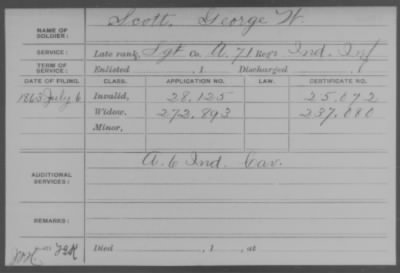 Scott, George W.
NAME OF SOLDIER:
SERVICE: Late rank, Sgt Co. A, 71 Reg't Ind. Inf
TERM OF SERVICE: Enlisted , 1 Discharged , 1
DATE OF FILING. CLASS. APPLICATION NO. LAW. CERTIFICATE NO.
1863 July 6 Invalid, 28.125 25.072
Widow, 272.893 237.080
Minor,
A. 6 Ind. Cav.
ADDITIONAL SERVICES:
REMARKS:
Died , 1 , at